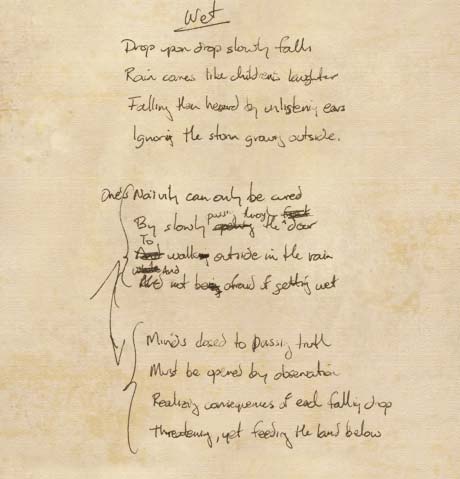 Wet
Drop upon drop slowly falls
Rain comes like children's laughter
Falling then heard by unlistening ears
Ignoring the storm growing outside.
One's Naivity can only be cured
By slowly passing through the door
To walk outside in the rain
And not be afraid of getting wet
Minds closed to passing truth
Must be opened by observation
Realizing consequences of each falling drop
Threatening, yet feeding the land below